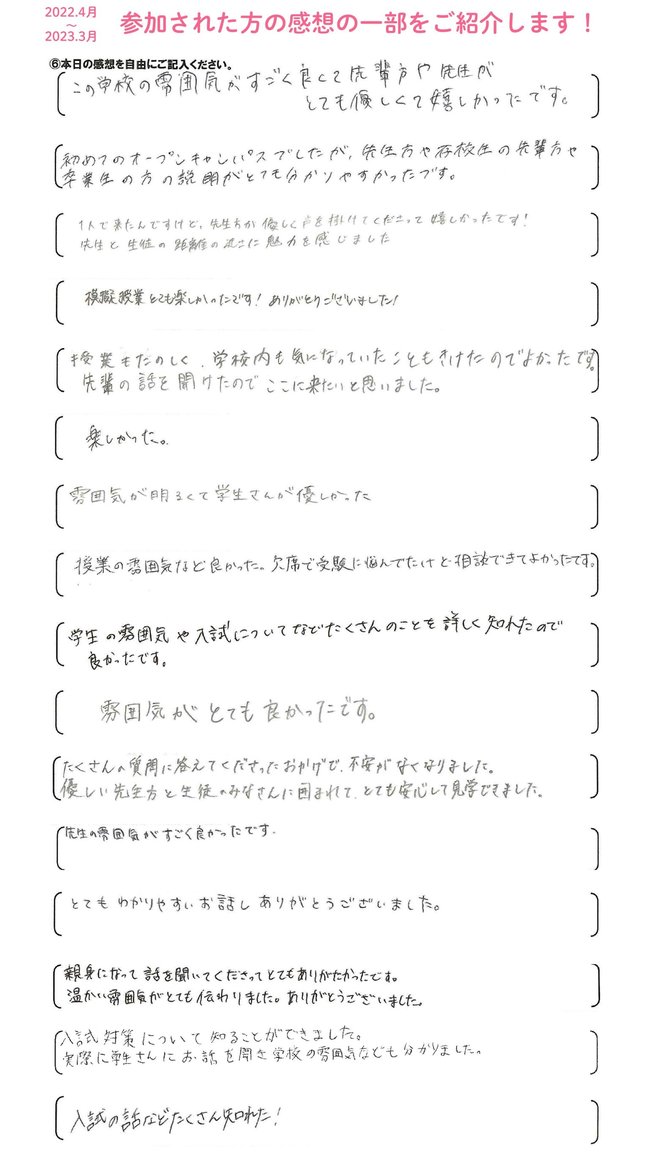 2022.4月
〜
2023.3月
参加された方の感想の一部をご紹介します！
⑥本日の感想を自由にご記入ください。
この学校の雰囲気がすごく良くて先輩方や先生が
とても優しくて嬉しかったです。
初めてのオープンキャンパスでしたが、先生方や在校生の先輩方や
卒業生の方の説明がとても分かりやすかったです。
1人で来たんですけど、先生方が優しく声を掛けてくださって嬉しかったです！
先生と生徒の距離の近さに魅力を感じました
模擬授業とても楽しかったです！ありがとうございました！
授業もたのしく、学校内も気になっていたこともきけたのでよかったです。
先輩の話を聞けたのでここに来たいと思いました。
楽しかった。
雰囲気が明るくて学生さんが優しかった
授業の雰囲気など良かった。欠席で受験に悩んでたけど相談できてよかったです。
学生の雰囲気や入試についてなどたくさんのことを詳しく知れたので
良かったです。
雰囲気がとても良かったです。
たくさんの質問に答えてくださったおかげで、不安がなくなりました。
優しい先生方と生徒のみなさんに囲まれて、とても安心して見学できました。
先生の雰囲気がすごく良かったです.
とてもわかりやすいお話しありがとうございました。
親身になって話を聞いてくださってとてもありがたかったです。
温かい雰囲気がとても伝わりました。ありがとうございました。
入試対策について知ることができました。
実際に学生さんにお話を聞き学校の雰囲気なども分かりました。
入試の話などたくさん知れた！